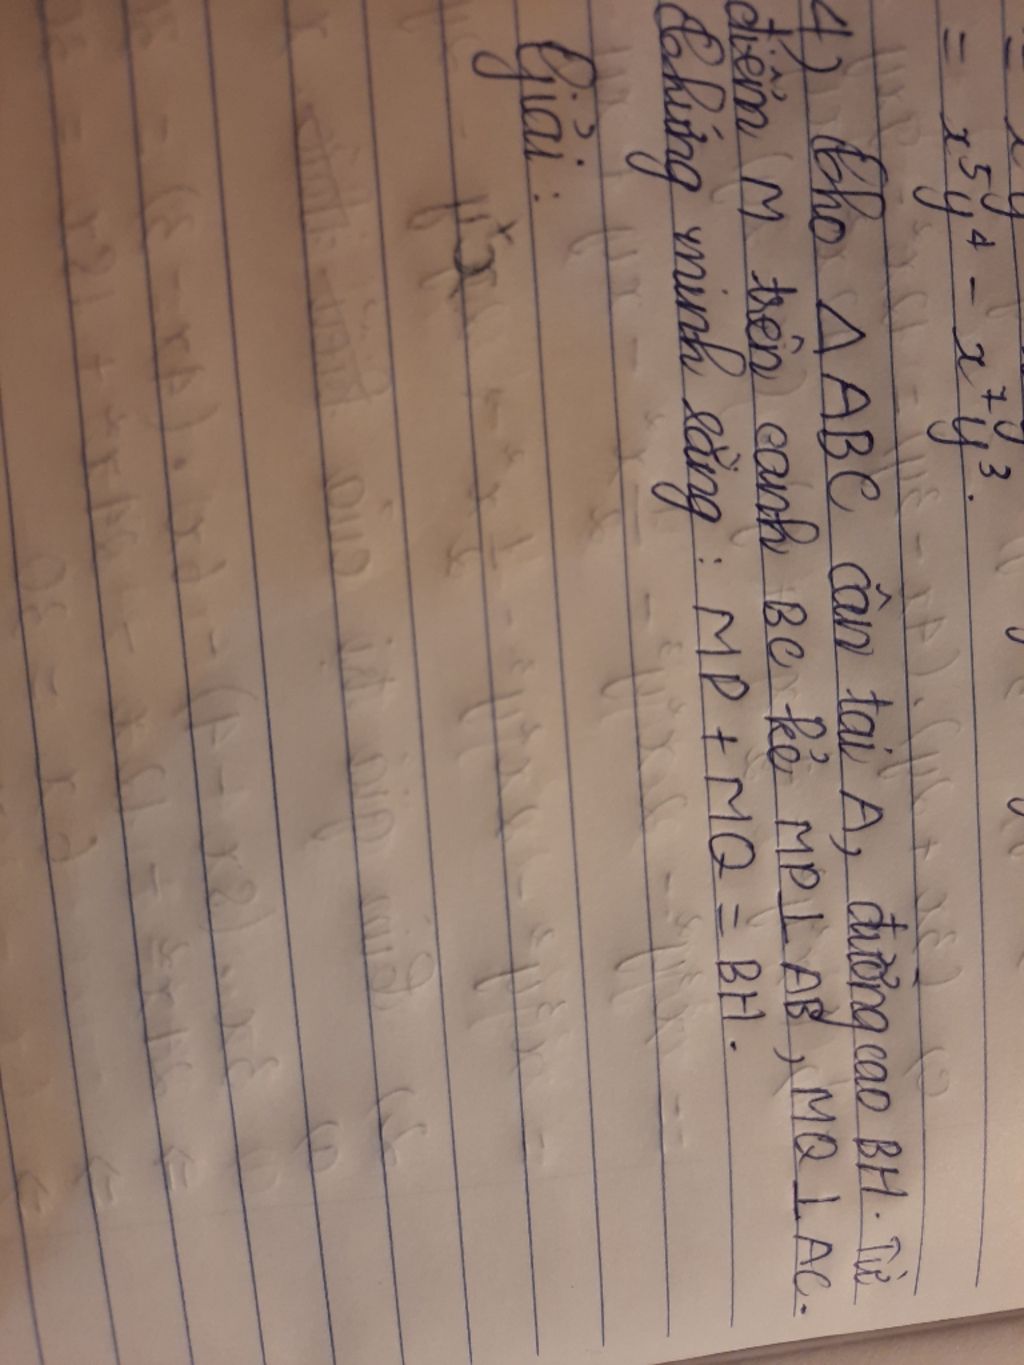 = x⁵y⁴ - x⁷y³.
4) Cho Δ ABC cân tại A, đường cao BH. Từ
điểm M trên cạnh BC kẻ MP⊥AB, MQ⊥AC.
Chứng minh rằng: MP + MQ = BH.
Giải: